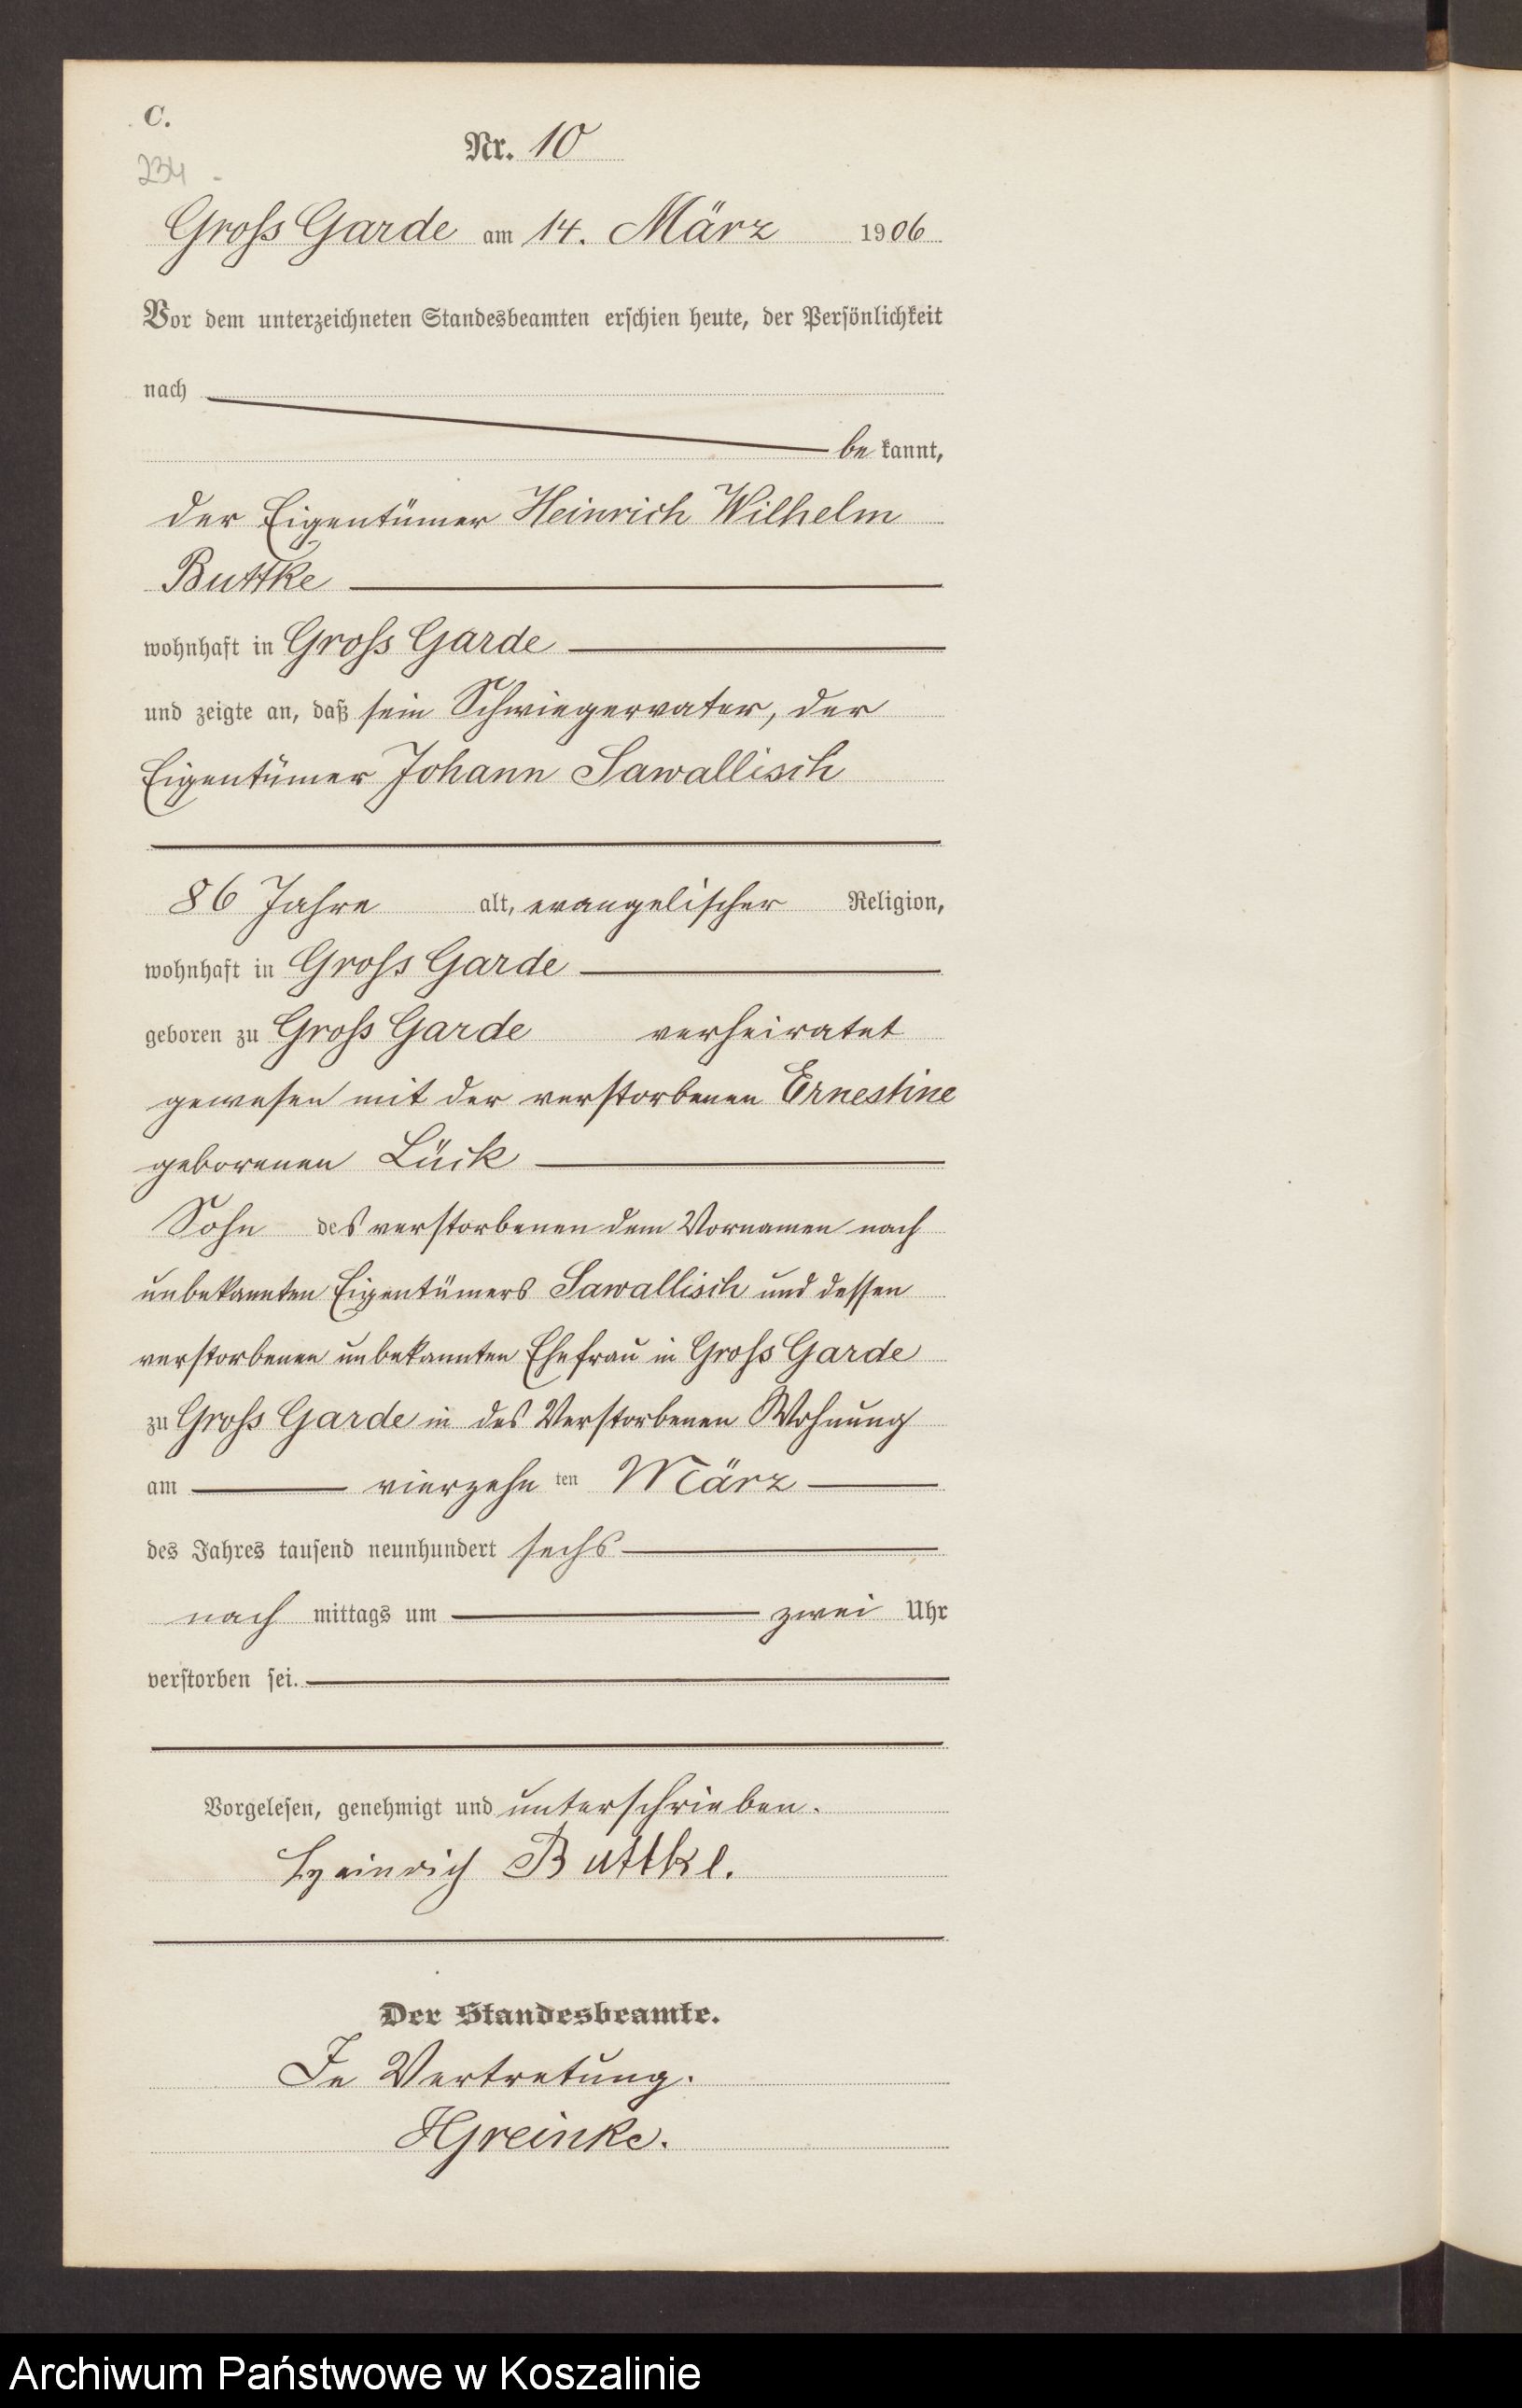 C.
Nr. 10
234
Gross Garde am 14. März 1906
Vor dem unterzeichneten Standesbeamten erschien heute, der Persönlichkeit
nach
be kannt,
der Eigentümer Heinrich Wilhelm
Buttke
wohnhaft in Gross Garde
und zeigte an, daß sein Schwiegervater, der
Eigentümer Johann Sawallisch
86 Jahre alt, evangelischer Religion,
wohnhaft in Gross Garde
geboren zu Gross Garde verheiratet
gewesen mit der verstorbenen Ernestine
geborenen Lück
Sohn des verstorbenen dem Vornamen nach
unbekannten Eigentümers Sawallisch und dessen
verstorbenen unbekannten Ehefrau in Gross Garde
zu Gross Garde in des Verstorbenen Wohnung
am vierzehn ten März
des Jahres tausend neunhundert sechs
nach mittags um zwei Uhr
verstorben sei.
Vorgelesen, genehmigt und unterschrieben.
Heinrich Buttke.
Der Standesbeamte.
In Vertretung.
HGreinke.
Archiwum Państwowe w Koszalinie